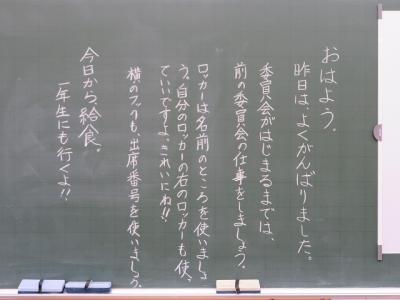 おはよう。
昨日は、よくがんばりました。
委員会がはじまるまでは、
前の委員会の仕事をしましょう。
ロッカーは名前のところを使いましょ
う。自分のロッカーの右のロッカーも使っ
ていいですよ。きれいにね!!
横のフックも、出席番号を使いましょう。
今日から給食。
一年生にも行くよ!!